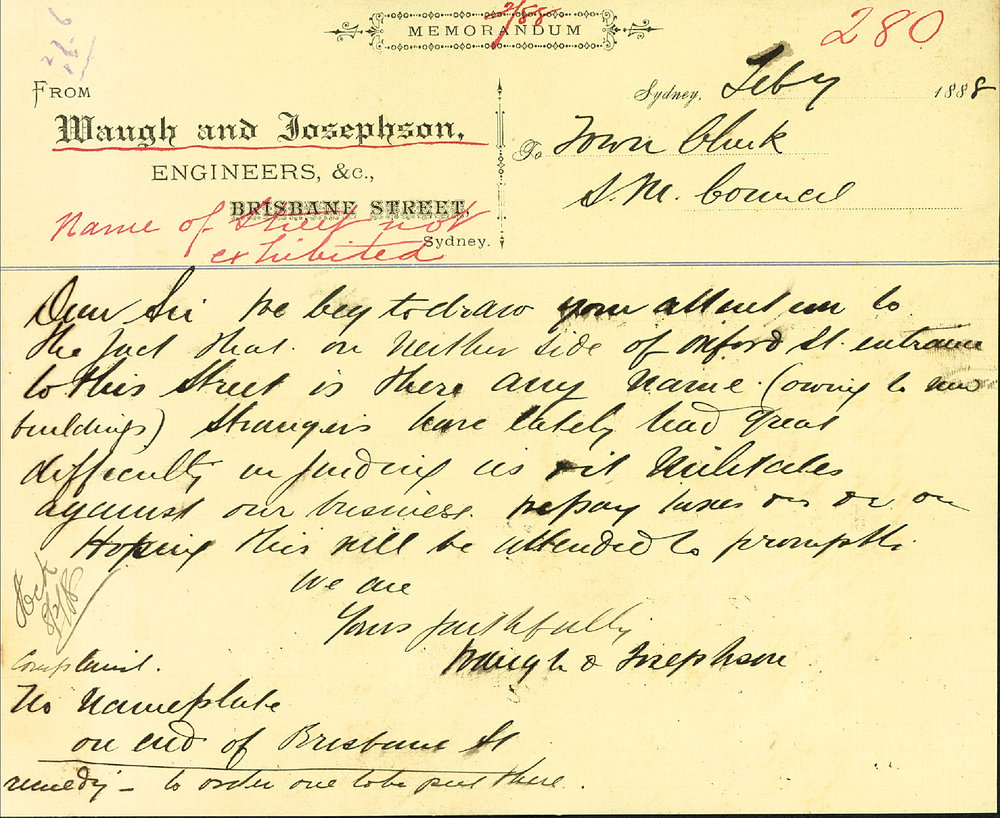 2/88
MEMORANDUM
280
FROM
Waugh and Josephson,
ENGINEERS, &c.,
BRISBANE STREET,
Sydney.
Name of Street not
exhibited
Sydney, Feby 1888
To Town Clerk
S. M. Council
Dear Sir We beg to draw your attention to
the fact that on neither side of Oxford St. entrance
to this Street is there any Name. (owing to new
buildings) Strangers have lately had great
difficulty in finding us & it Militates
against our business. We pay taxes
Hoping this will be attended to promptly
We are
Yours faithfully
Waugh & Josephson
Complaint.
No Nameplate
on end of Brisbane St
remedy - to order one to be put there.